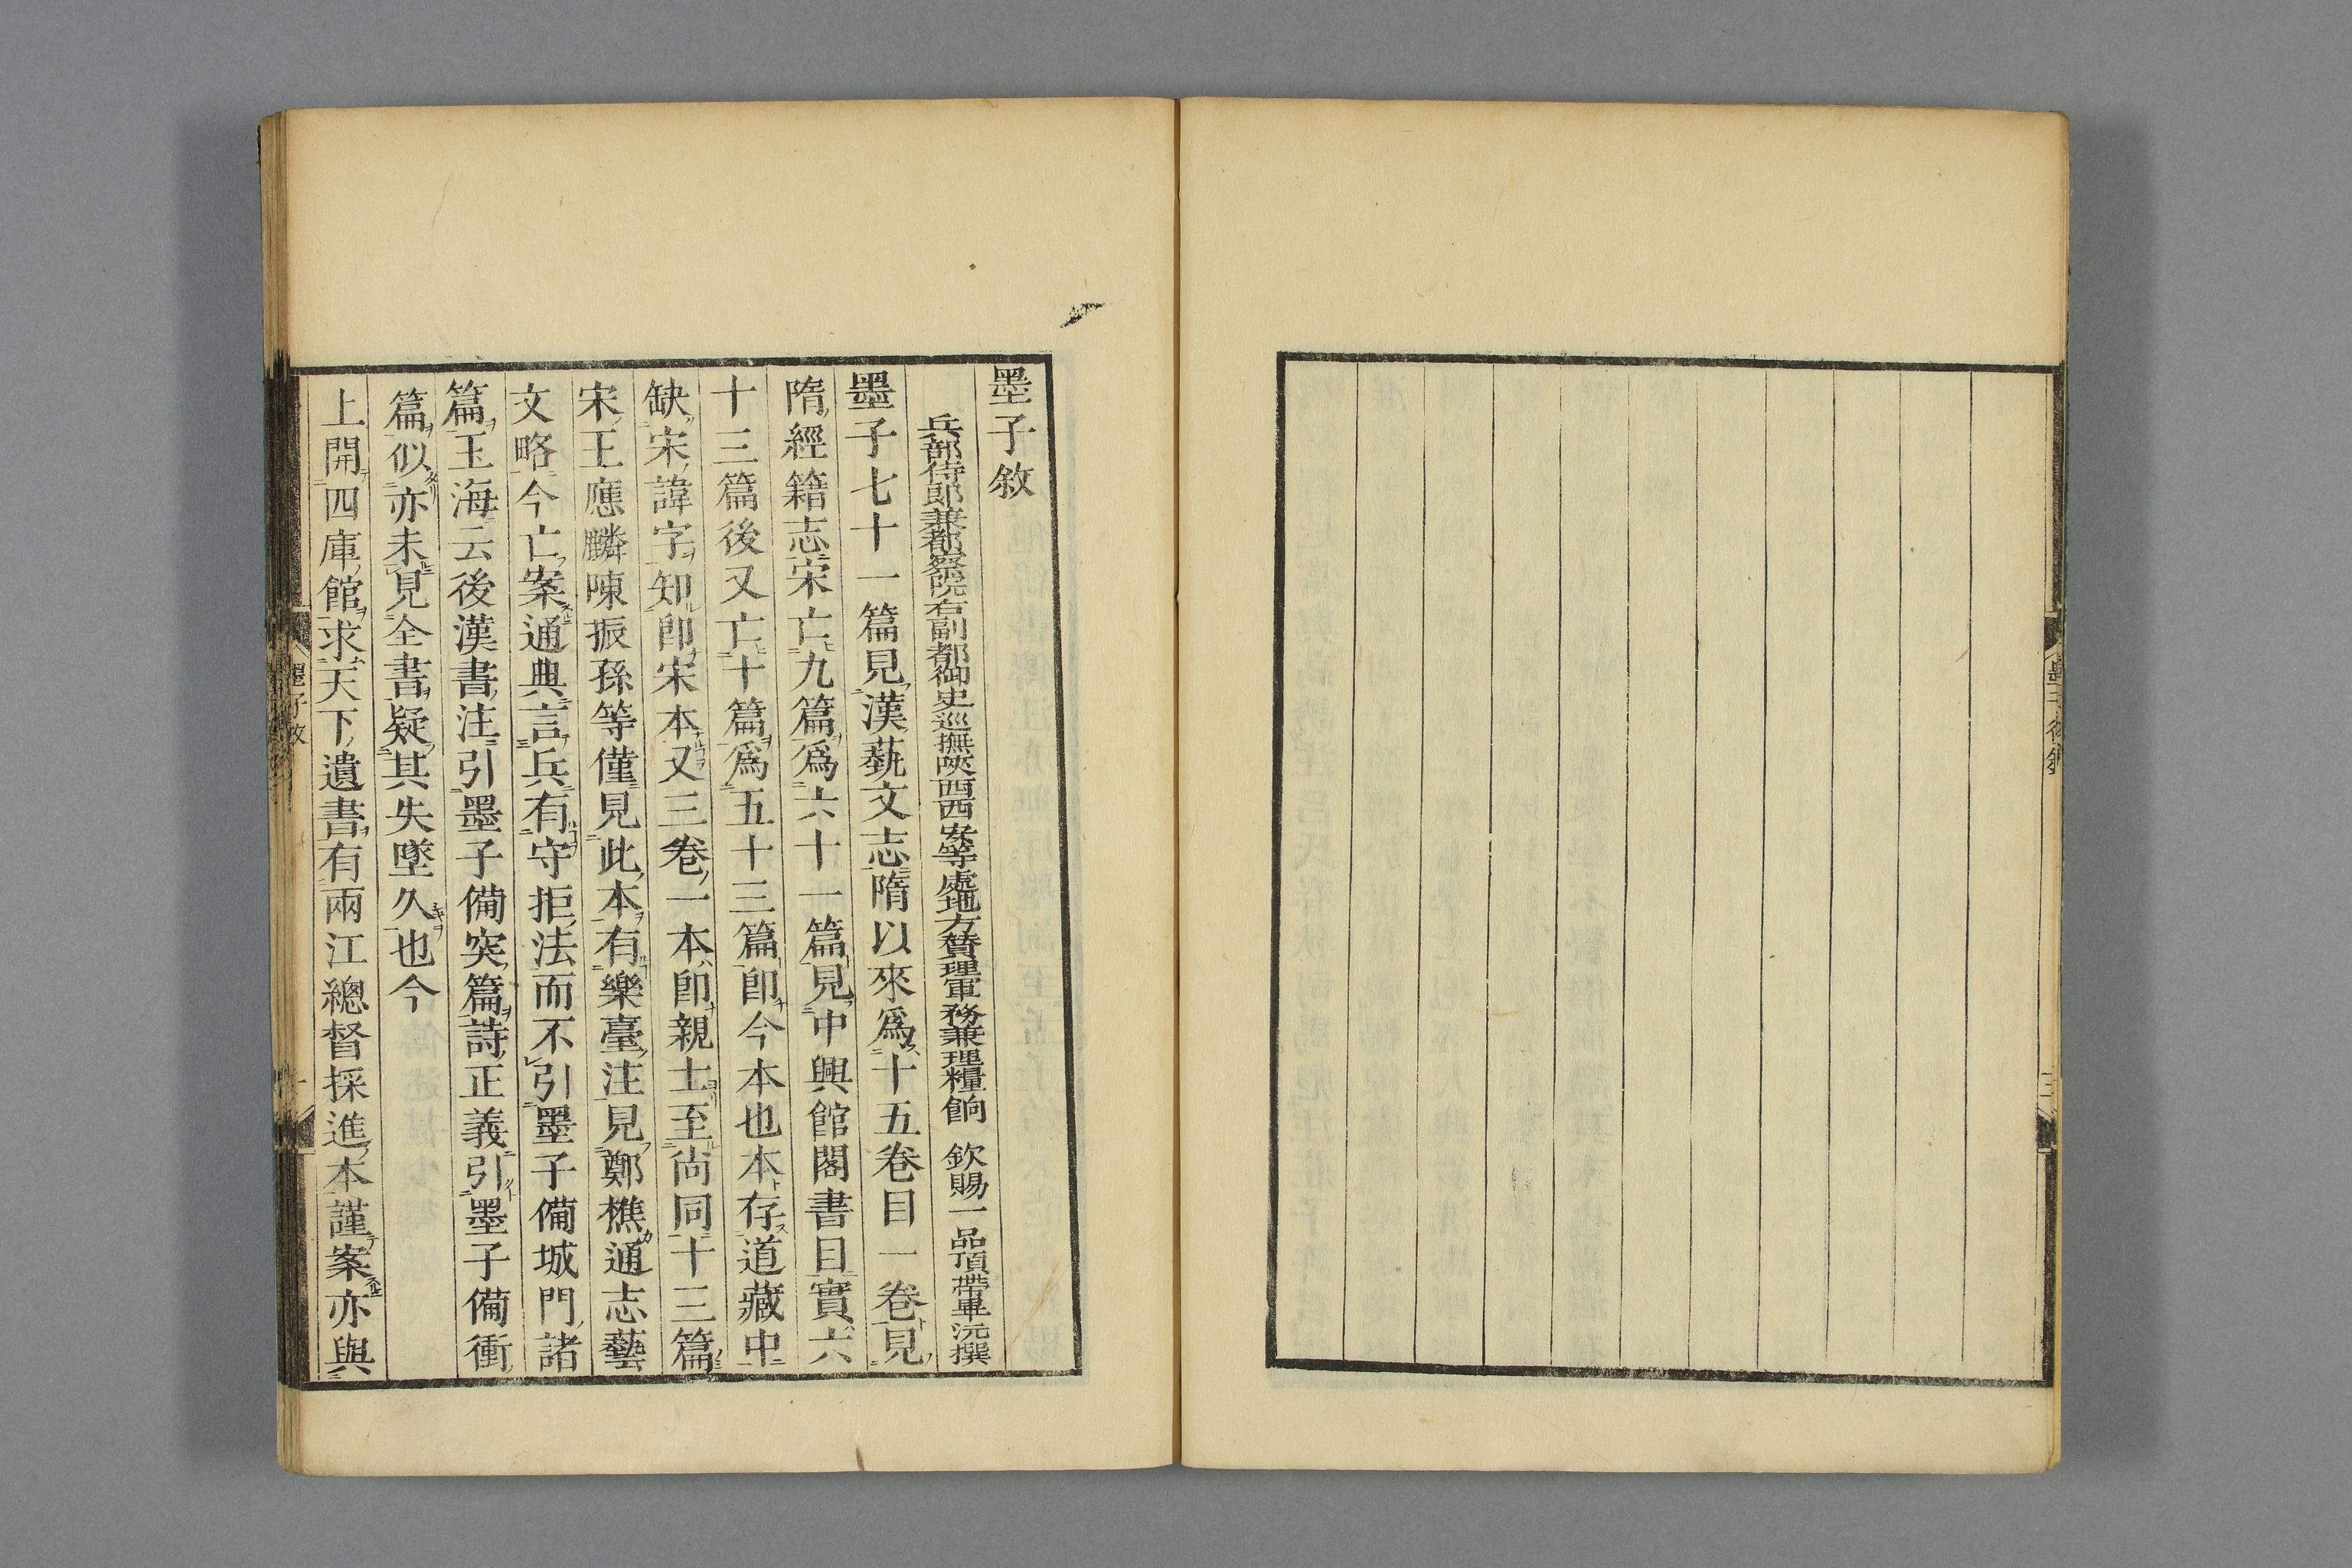 墨子敘
兵部侍郎兼都察院右副都御史巡撫陝西西安等處地方贊理軍務兼理糧餉 欽賜一品頂帶畢沅撰
墨子七十一篇見漢藝文志隋以來爲十五卷目一卷見
隋經籍志宋亡九篇爲六十一篇見中興館閣書目實六
十三篇後又亡十篇爲五十三篇卽今本也本存道藏中
缺宋諱字知卽宋本又三卷一本卽親士至尙同十三篇
宋王應麟陳振孫等僅見此本有樂臺注見鄭樵通志藝
文略今亡案通典言兵有守拒法而不引墨子備城門諸
篇玉海云後漢書注引墨子備突篇詩正義引墨子備衝
篇似亦未見全書疑其失墜久也今
上開四庫館求天下遺書有兩江總督採進本謹案亦與
墨子敘